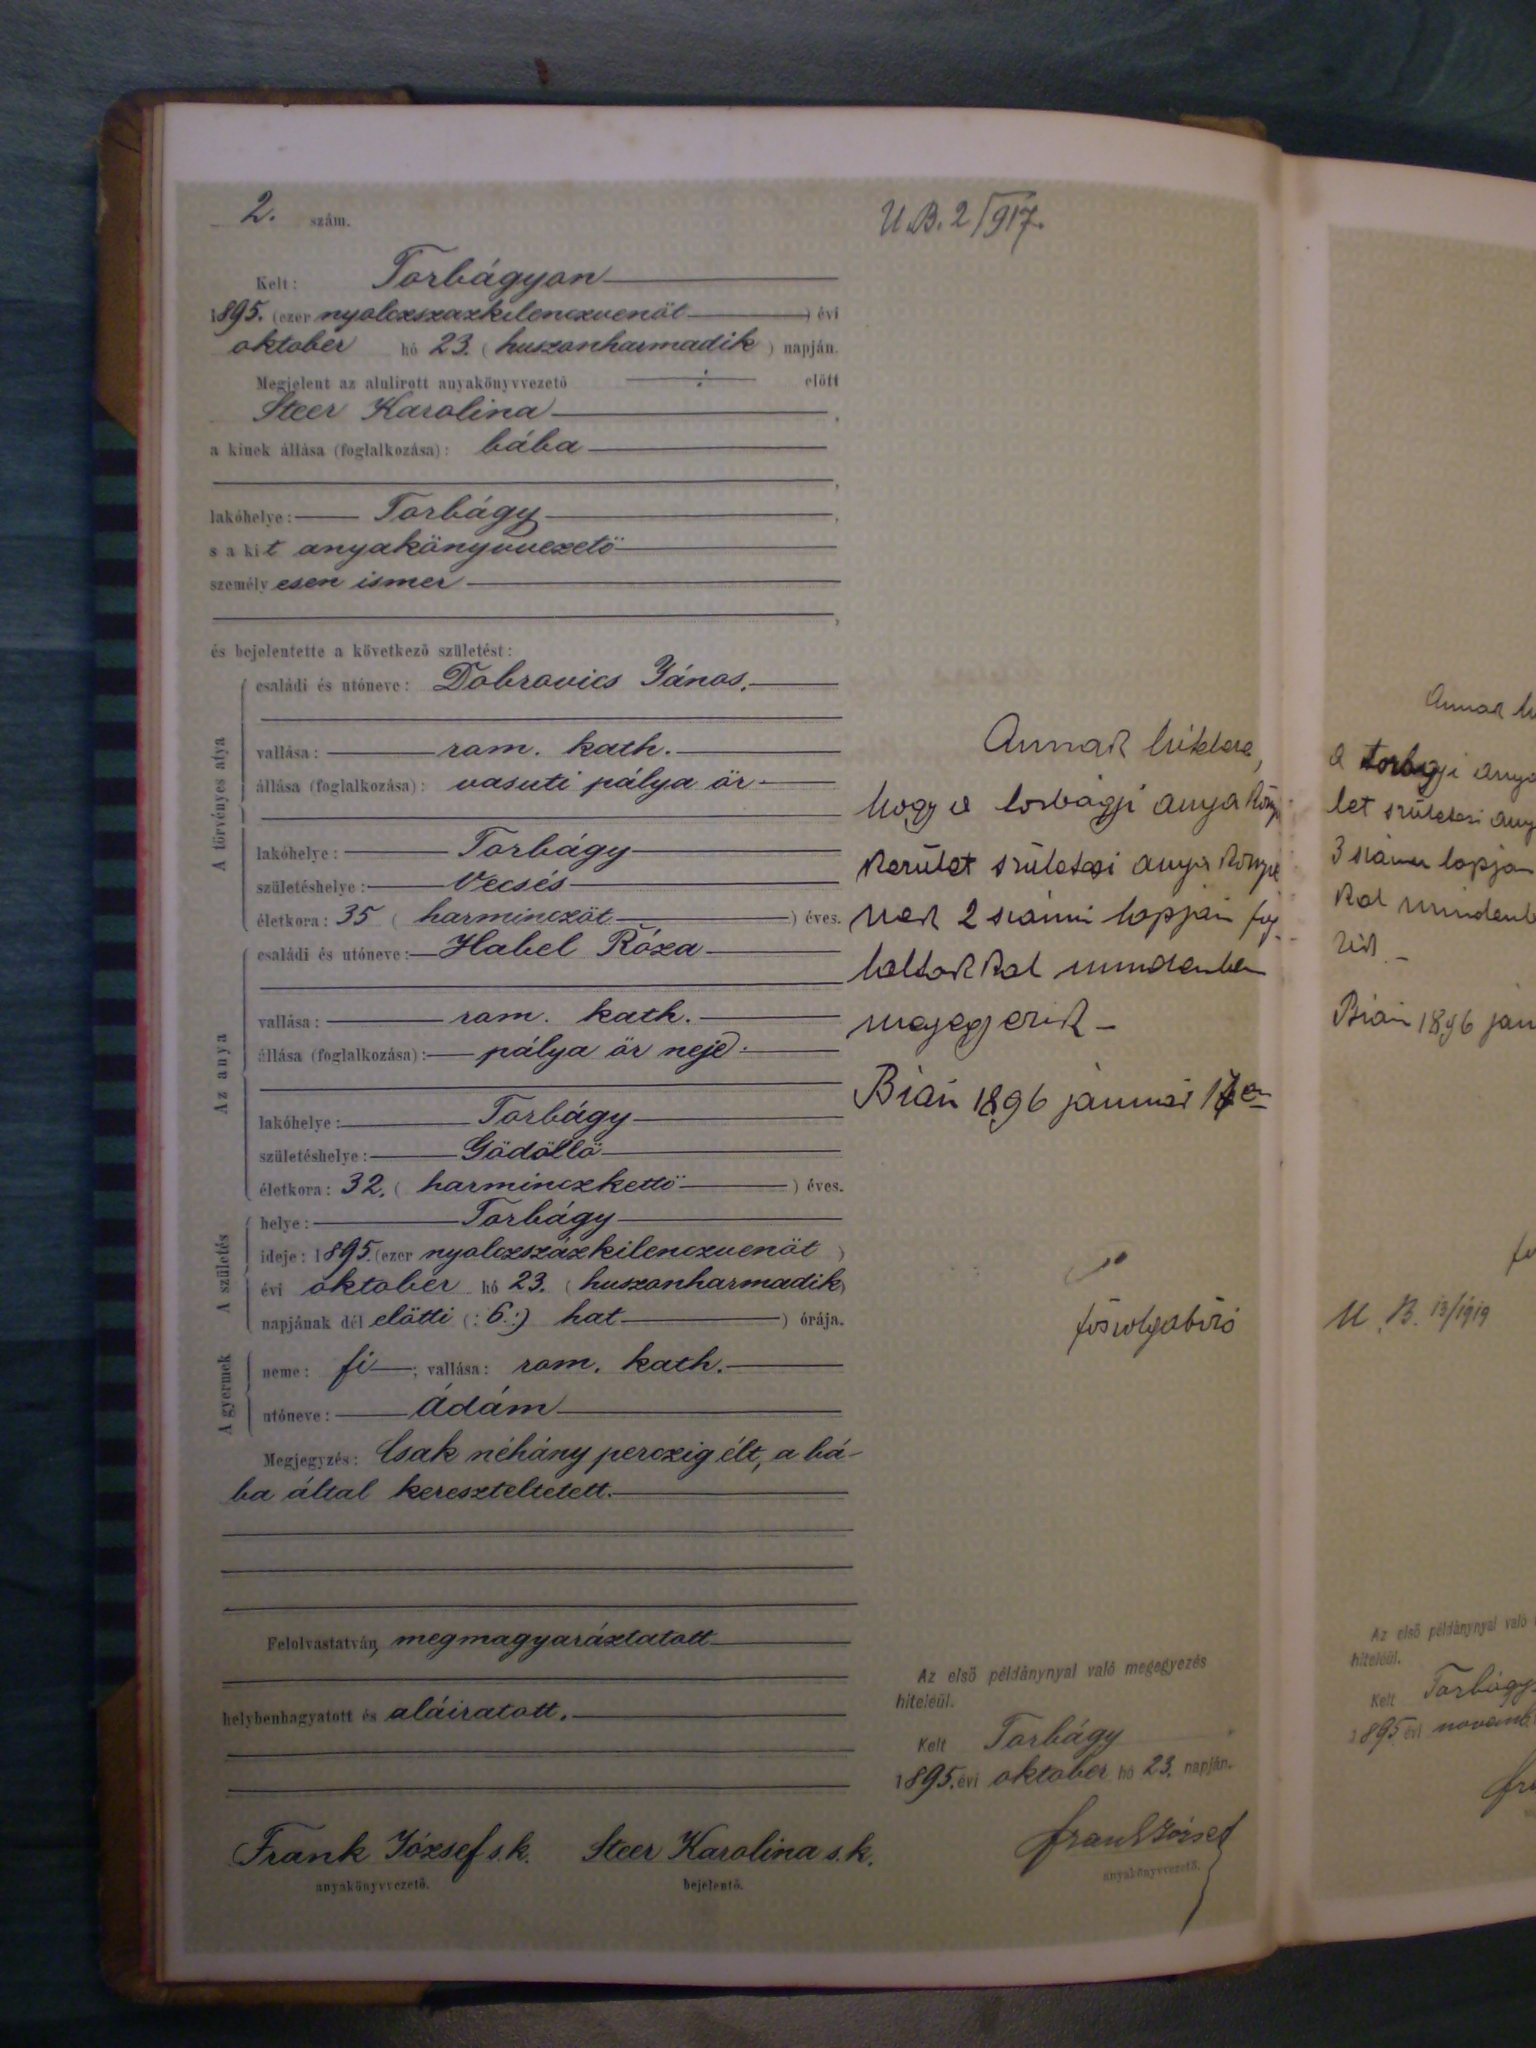 2. szám.
U.B. 2/917.
Kelt: Torbágyon
1895. (ezer nyolczszazkilenczvenöt ) évi
oktober hó 23. ( huszonharmadik ) napján.
Megjelent az alulirott anyakönyvvezető előtt
Steer Karolina ,
a kinek állása (foglalkozása): bába
,
lakóhelye: Torbágy ,
s a kit anyakönyvvezetö
személyesen ismer
,
és bejelentette a következő születést:
A törvényes atya
családi és utóneve: Dobrovics János.
vallása: rom. kath.
állása (foglalkozása): vasuti pálya ör
lakóhelye: Torbágy
születéshelye: Vecsés
életkora: 35 ( harminczöt ) éves.
Az anya
családi és utóneve: Habel Róza
vallása: rom. kath.
állása (foglalkozása): pálya ör neje
lakóhelye: Torbágy
születéshelye: Gödöllö
életkora: 32. ( harminczkettö ) éves.
A születés
helye: Torbágy
ideje: 1895. (ezer nyolczszázkilenczvenöt )
évi oktober hó 23. ( huszonharmadik )
napjának dél elötti (: 6. :) hat ) órája.
A gyermek
neme: fi ; vallása: rom. kath.
utóneve: Ádám
Megjegyzés: Csak néhány perczig élt, a bá-
ba által kereszteltetett.
Felolvastatván, megmagyaráztatott
helybenhagyatott és aláiratott.
Frank József s.k. Steer Karolina s.k.
anyakönyvvezető. bejelentő.
Annak hiteleül,
hogy a torbágyi anyaköny
kerület születési anyakönyvé
nek 2 számú lapján fog
laltakkal mindenben
megegyezik –
Bián 1896 január 17 én
főszolgabíró
Az első példánynyal való megegyezés
hiteléül.
Kelt Torbágy
1895. évi oktober hó 23. napján.
Frank József
anyakönyvvezető.
Annak hi
a torbágyi anya
let születési any
3 számú lapján
kal mindenb
zik –
Bián 1896 jan
U. B. 13/1919
Az első példánynyal való
hiteléül.
Kelt Torbágy
1895 évi novemb